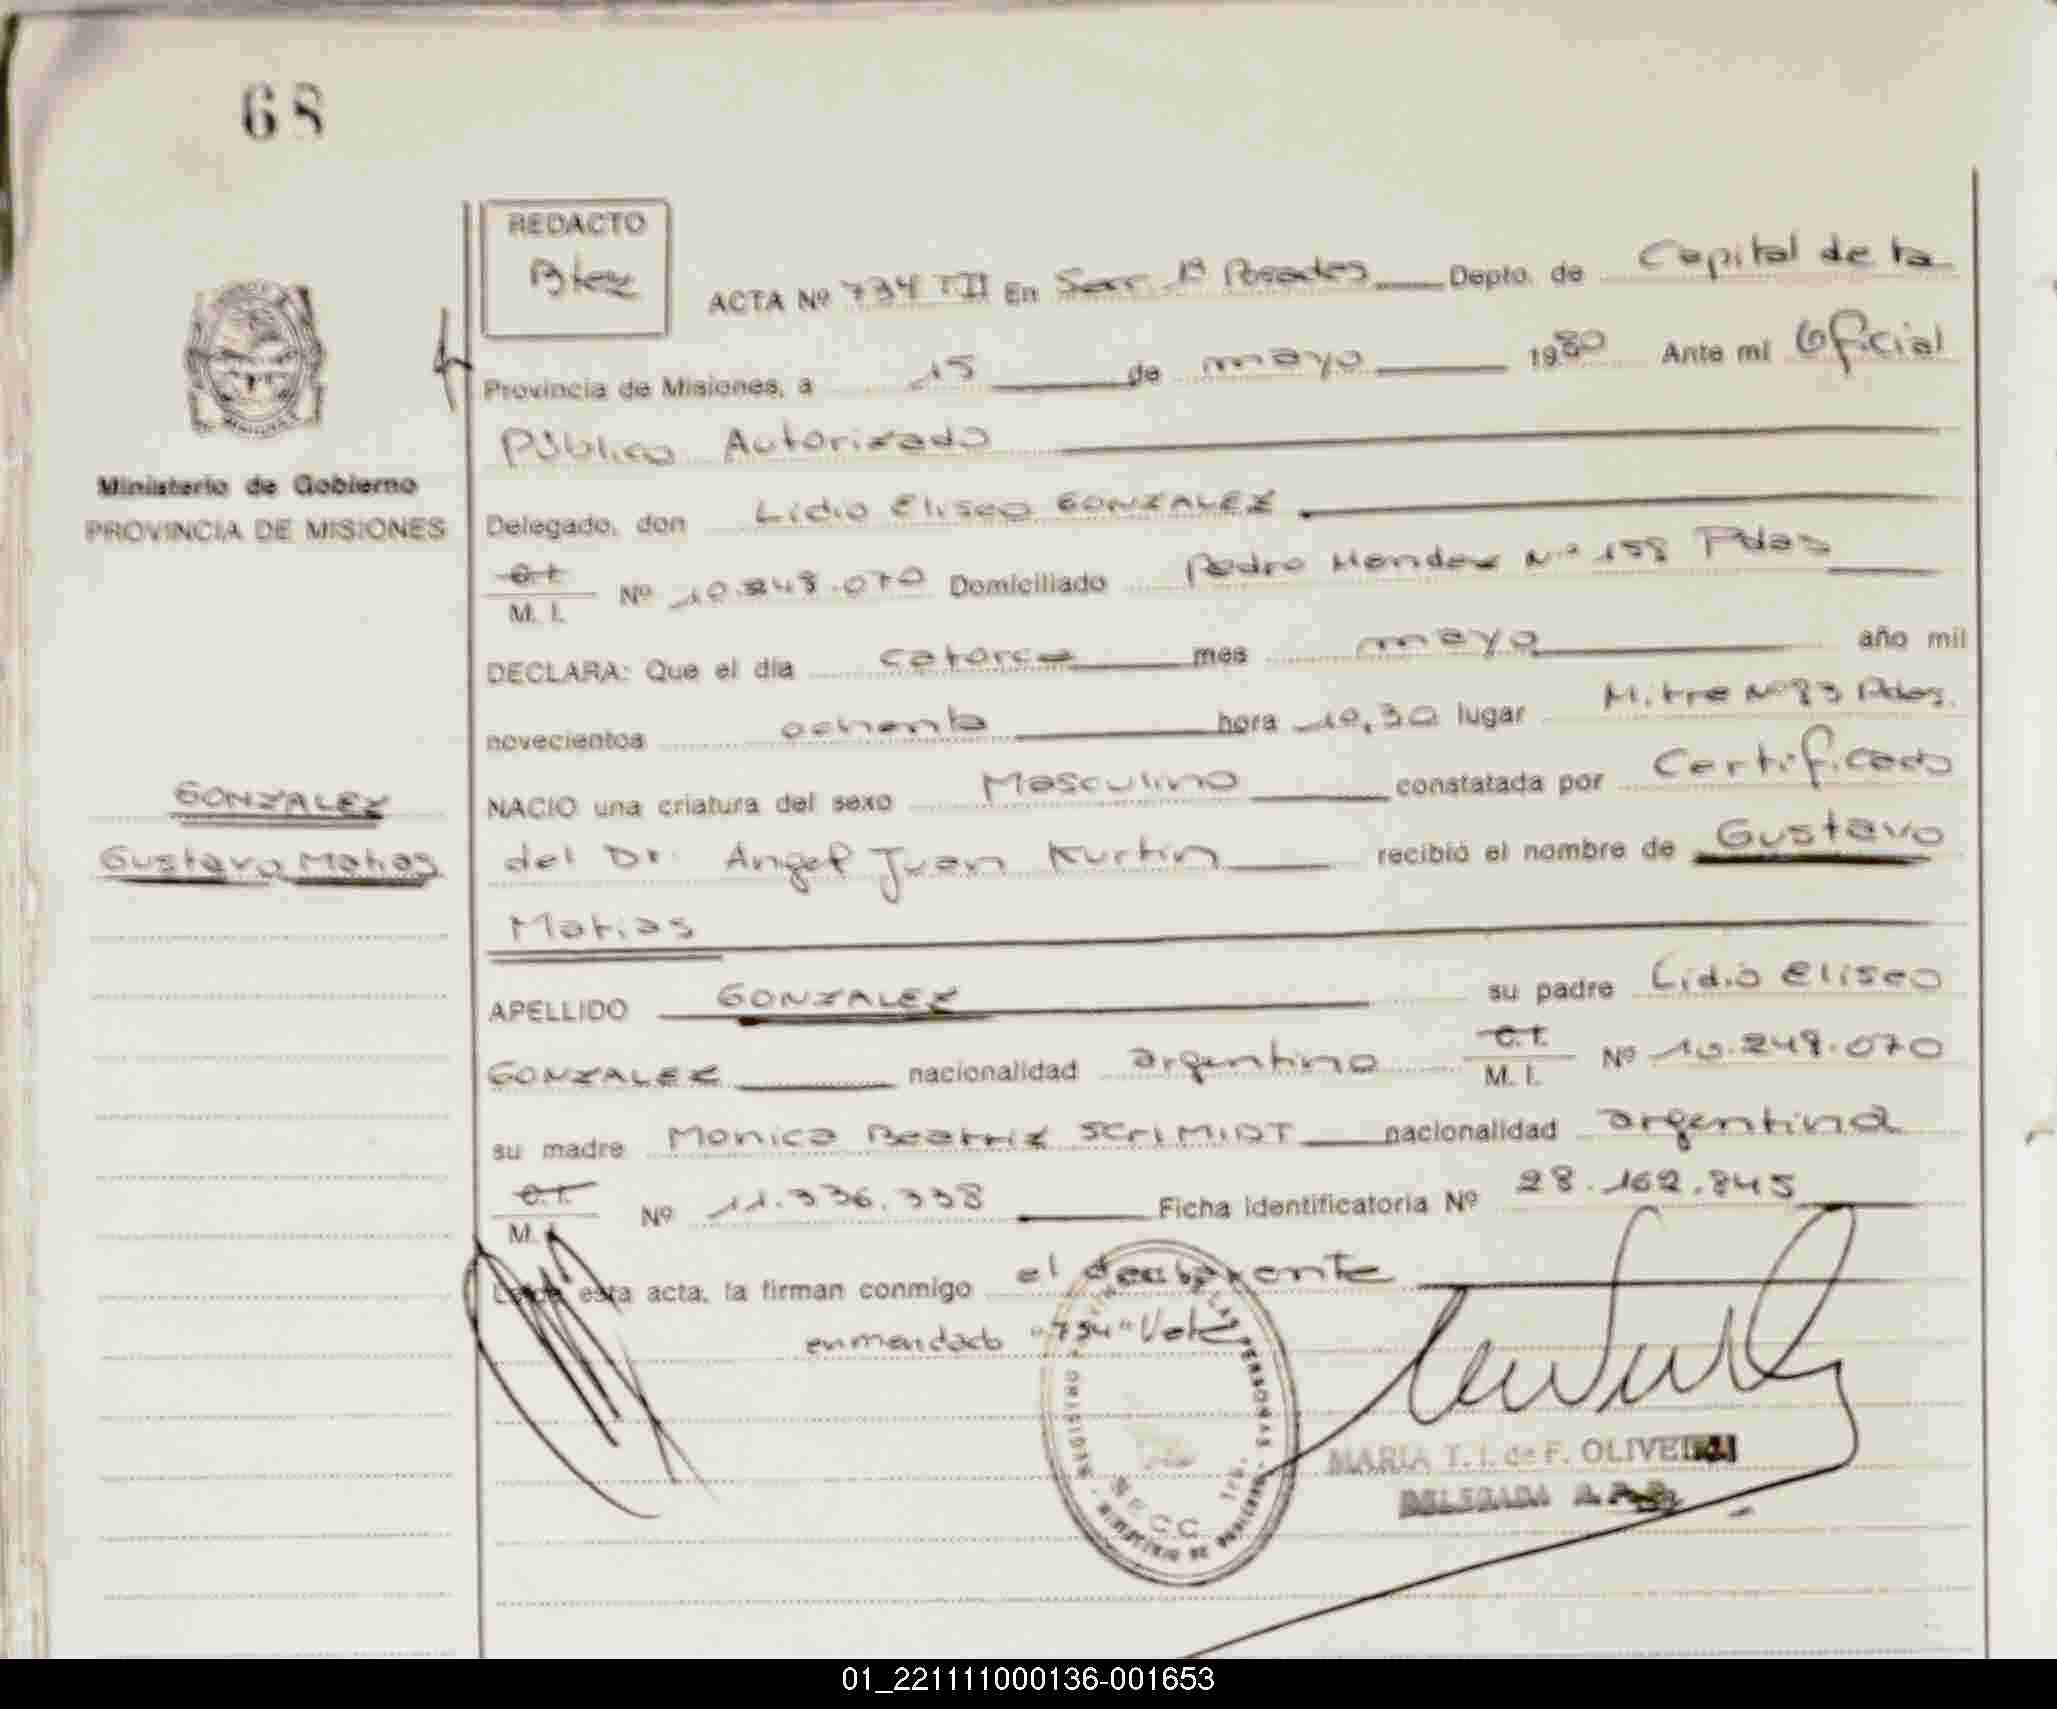 68
REDACTO
Btez
ACTA Nº 734 TII En Secc. 1ª Posadas Depto. de Capital de la
Provincia de Misiones, a 15 de mayo 1980 Ante mi Oficial
Público Autorizado
Ministerio de Gobierno
PROVINCIA DE MISIONES
Delegado, don Lidio Eliseo GONZALEZ
C.I.
M. I. Nº 10.248.070 Domiciliado Pedro Mendez Nº 158 Pdas
DECLARA: Que el día catorce mes mayo año mil
novecientos ochenta hora 10,30 lugar Mitre Nº 83 Pdas.
NACIO una criatura del sexo Masculino constatada por Certificado
GONZALEZ
Gustavo Matias
del Dr. Angel Juan Kurtin recibió el nombre de Gustavo
Matias
APELLIDO GONZALEZ su padre Lidio Eliseo
GONZALEZ nacionalidad argentino C.I. M. I. Nº 10.248.070
su madre Monica Beatriz SCHMIDT nacionalidad argentina
C.I.
M. I. Nº 11.336.338 Ficha Identificatoria Nº 28.162.845
Leída esta acta, la firman conmigo el declarante
enmendado "734" Vale
PERSONAS
SECC 1ra.
MARIA T. I. de F. OLIVEIRA
DELEGADA
01_221111000136-001653